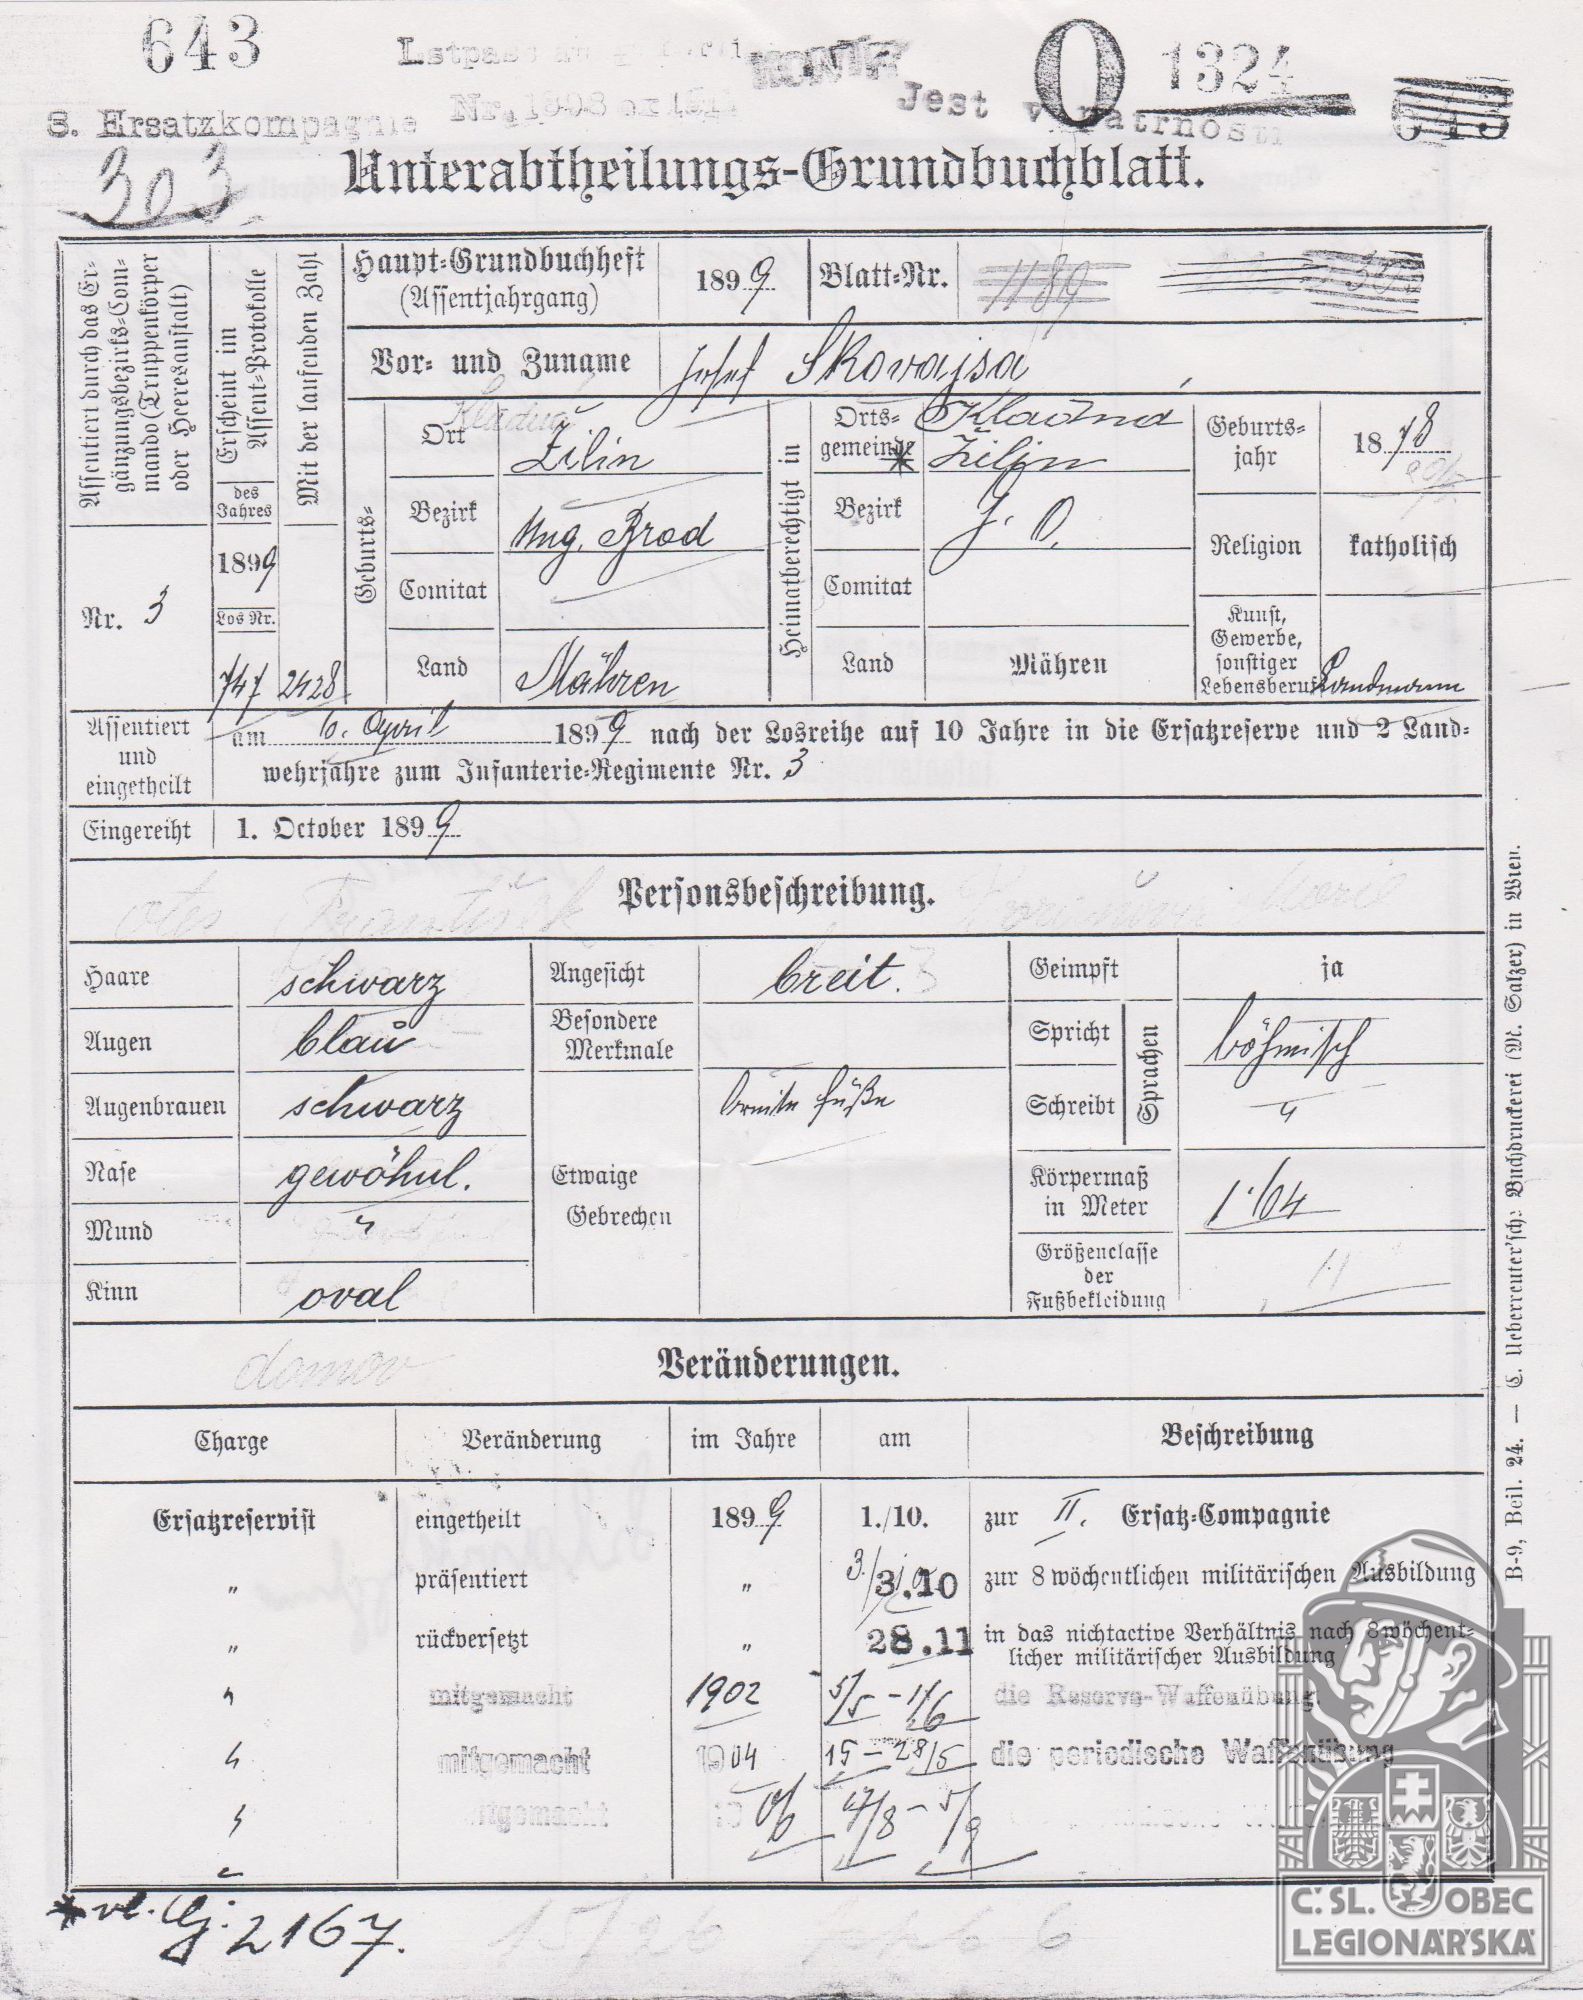 643
O 1324
643
8. Ersatzkompagnie
Jest v patrnosti
303
Unterabtheilungs-Grundbuchblatt.
Assentiert durch das Ergänzungsbezirks-Commando (Truppenkörper oder Heeresanstalt)
Nr. 3
Erscheint im Assent-Protokolle
des Jahres
1899
Los Nr.
747
Mit der laufenden Zahl
2428
Haupt-Grundbuchheft (Assentjahrgang) 1899 Blatt-Nr. 1189
Vor- und Zuname Josef Skovajsa
Geburts-
Ort Žilin
Bezirk Ung. Brod
Comitat
Land Mähren
Heimatberechtigt in
Ortsgemeinde Kladna Žilin
Bezirk
Comitat
Land Mähren
Geburtsjahr 1878
Religion katholisch
Kunst, Gewerbe, sonstiger Lebensberuf Landmann
Assentiert und eingetheilt
am 6. April 1899 nach der Losreihe auf 10 Jahre in die Ersatzreserve und 2 Land-
wehrjahre zum Infanterie-Regimente Nr. 3
Eingereiht 1. October 1899
Personsbeschreibung.
otec František
Haare schwarz
Augen blau
Augenbrauen schwarz
Nase gewöhnl.
Mund "
Kinn oval
Angesicht breit.
Besondere Merkmale
Etwaige Gebrechen breite Füße
Geimpft ja
Spricht Sprachen böhmisch
Schreibt "
Körpermaß in Meter
Größenclasse der Fußbekleidung 11
domov
Veränderungen.
Charge Veränderung im Jahre am Beschreibung
Ersatzreservist eingetheilt 1899 1./10. zur II. Ersatz-Compagnie
" präsentiert " 3.10 zur 8 wöchentlichen militärischen Ausbildung
" rückversetzt " 28.11 in das nichtactive Verhältnis nach 8 wöchent-
licher militärischer Ausbildung
" mitgemacht 1902 5/5 - 1/6 die Reserve-Waffenübung.
" mitgemacht 1904 15 - 28/5 die periodische Waffenübung
" mitgemacht
* vl. Čj. 2167.
B-9, Beil. 24. — C. Ueberreuter'sche Buchdruckerei (M. Salzer) in Wien.
Č. SL. OBEC
LEGIONÁŘSKÁ